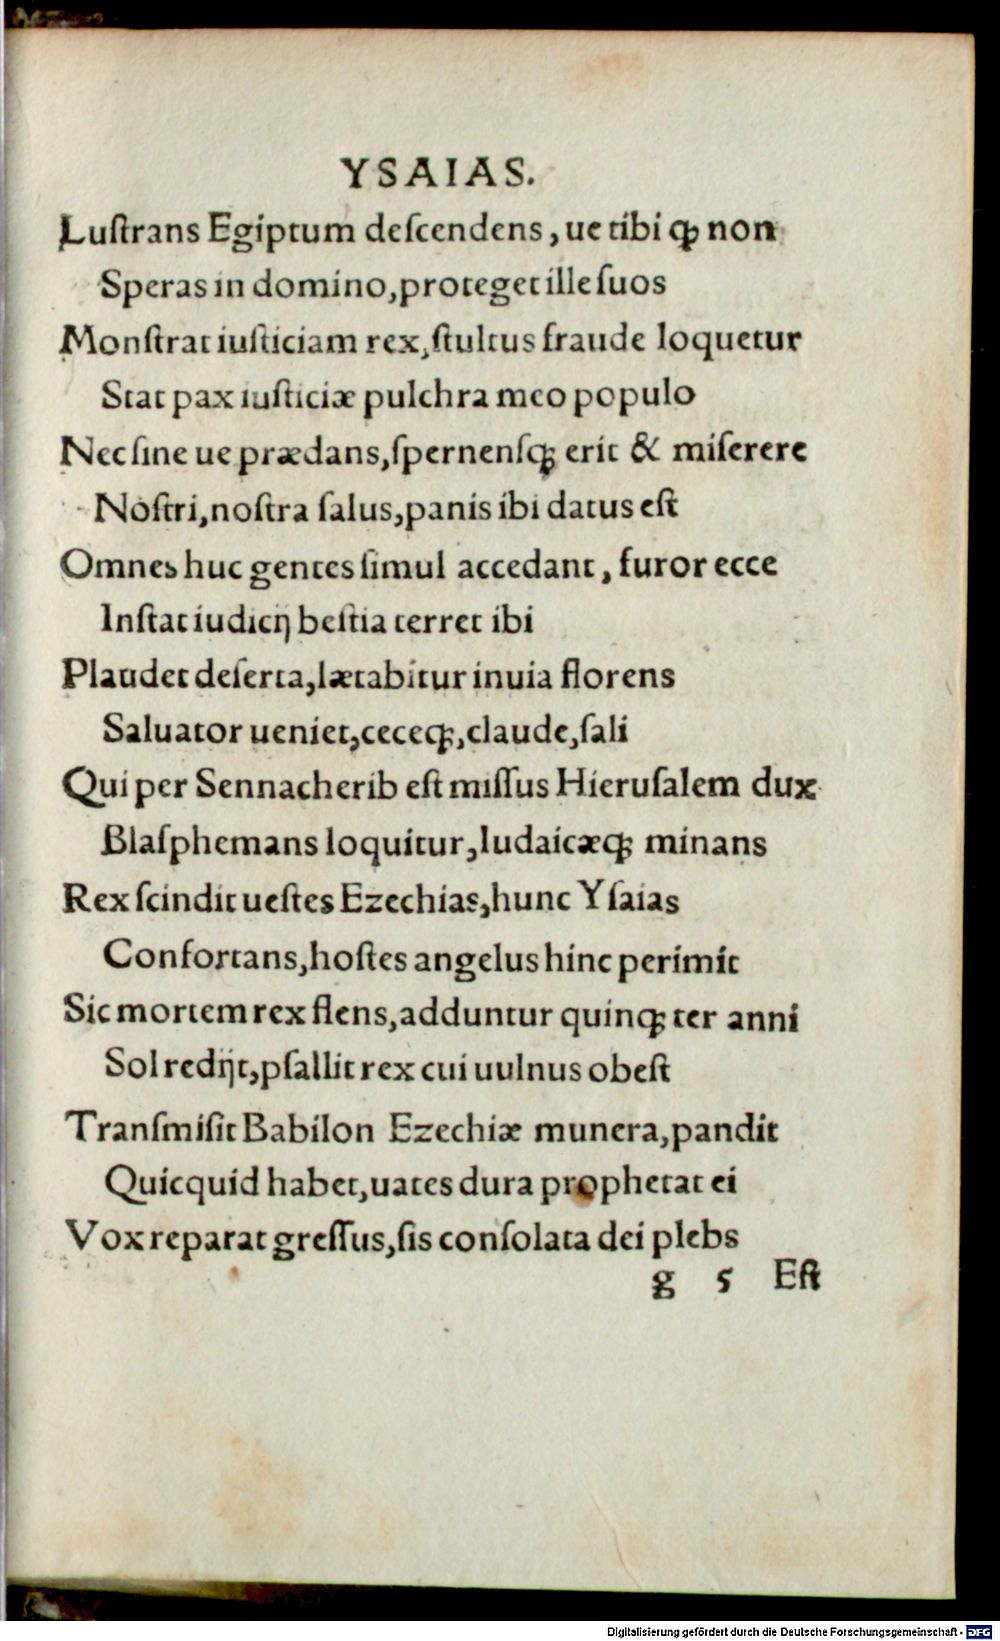 YSAIAS.
Luſtrans Egiptum deſcendens, ue tibi ꝙ non
Speras in domino, proteget ille ſuos
Monſtrat iuſticiam rex, ſtultus fraude loquetur
Stat pax iuſticiæ pulchra meo populo
Nec ſine ue prædans, ſpernenſꝗ erit & miſerere
Noſtri, noſtra ſalus, panis ibi datus eſt
Omnes huc gentes ſimul accedant, furor ecce
Inſtat iudicij beſtia terret ibi
Plaudet deſerta, lætabitur inuia florens
Saluator ueniet, cececꝗ, claude, ſali
Qui per Sennacherib eſt miſſus Hieruſalem dux
Blaſphemans loquitur, Iudaicæꝗ minans
Rex ſcindit ueſtes Ezechias, hunc Yſaias
Confortans, hoſtes angelus hinc perimit
Sic mortem rex flens, adduntur quinꝗ ter anni
Sol redijt, pſallit rex cui uulnus obeſt
Tranſmiſit Babilon Ezechiæ munera, pandit
Quicquid habet, uates dura prophetat ei
Vox reparat greſſus, ſis conſolata dei plebs
g 5 Eſt
Digitalisierung gefördert durch die Deutsche Forschungsgemeinschaft - DFG